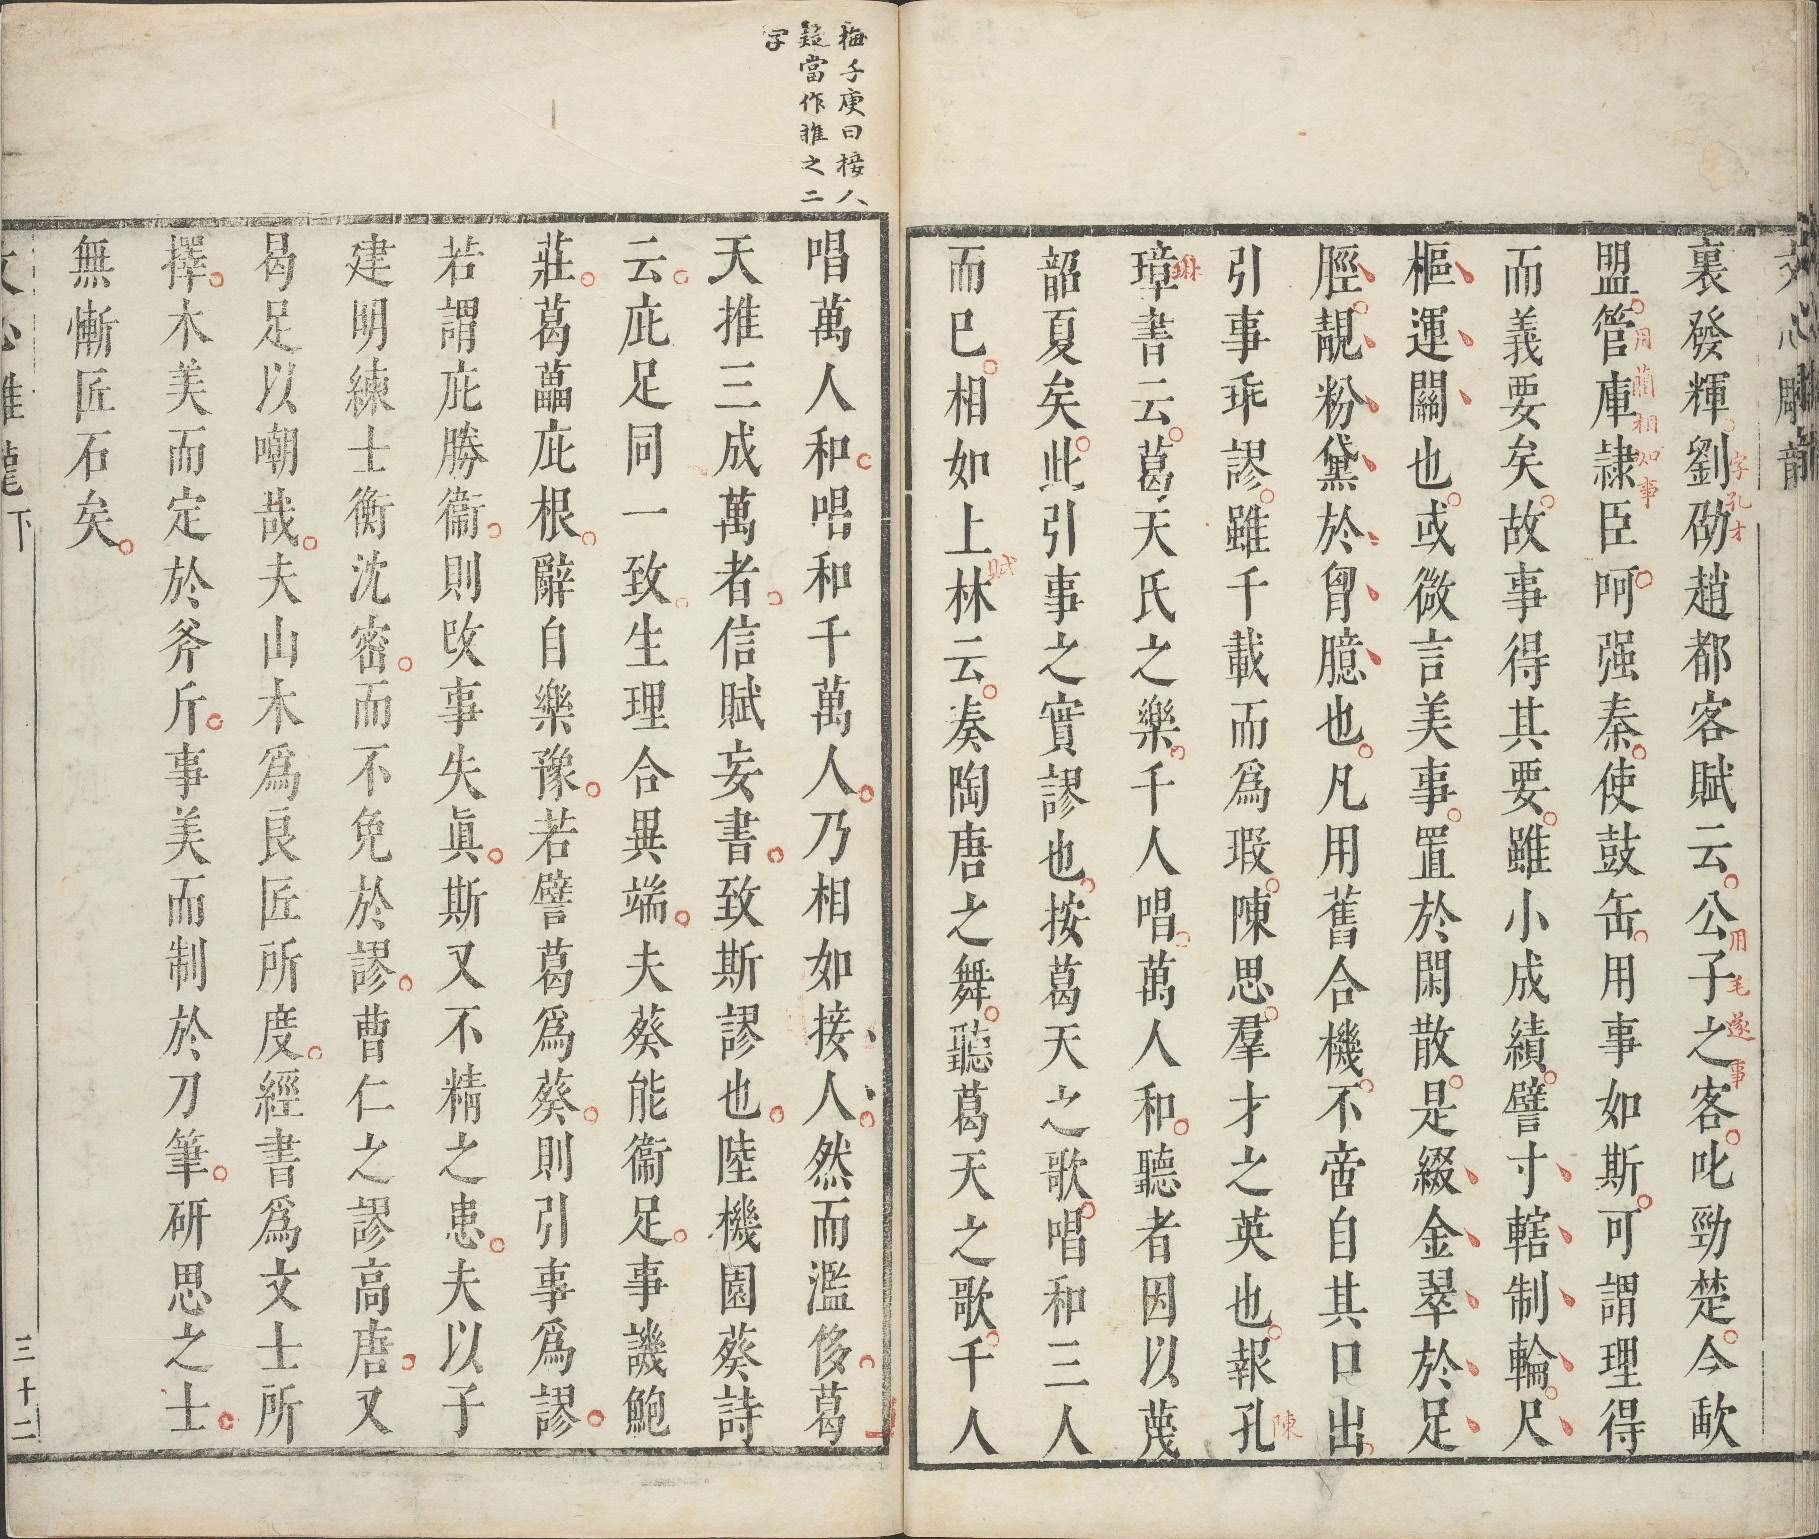 文心雕龍
裏發輝劉劭趙都客賦云公子之客叱勁楚今歃
字孔才
用毛遂事
盟管庫隷臣呵强秦使鼓缶用事如斯可謂理得
用藺相如事
而義要矣故事得其要雖小成績譬寸轄制輪尺
樞運關也或微言美事置於閑散是綴金翠於足
脛靚粉黛於胷臆也凡用舊合機不啻自其口出
引事乖謬雖千載而爲瑕陳思羣才之英也報孔
陳
璋書云葛天氏之樂千人唱萬人和聽者因以蔑
琳
韶夏矣此引事之實謬也按葛天之歌唱和三人
而已相如上林云奏陶唐之舞聽葛天之歌千人
賦
梅子庚曰接人
疑當作推之二
字
唱萬人和唱和千萬人乃相如接人然而濫侈葛
天推三成萬者信賦妄書致斯謬也陸機園葵詩
云庇足同一致生理合異端夫葵能衞足事譏鮑
莊葛藟庇根辭自樂豫若譬葛爲葵則引事爲謬
若謂庇勝衞則改事失眞斯又不精之患夫以子
建明練士衡沈密而不免於謬曹仁之謬高唐又
曷足以嘲哉夫山木爲良匠所度經書爲文士所
擇木美而定於斧斤事美而制於刀筆研思之士
無慚匠石矣
文心雕龍下
三十二